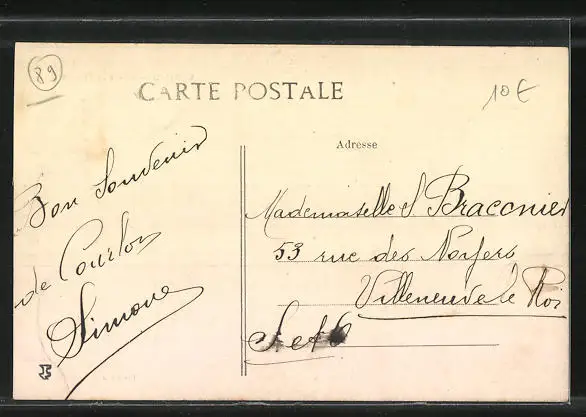 89
CARTE POSTALE
10€
Adresse
Bon Souvenir
de Courlon
Simone
Mademoiselle S Braconnier
53 rue des Noyers
Villeneuve le Roi
S et O